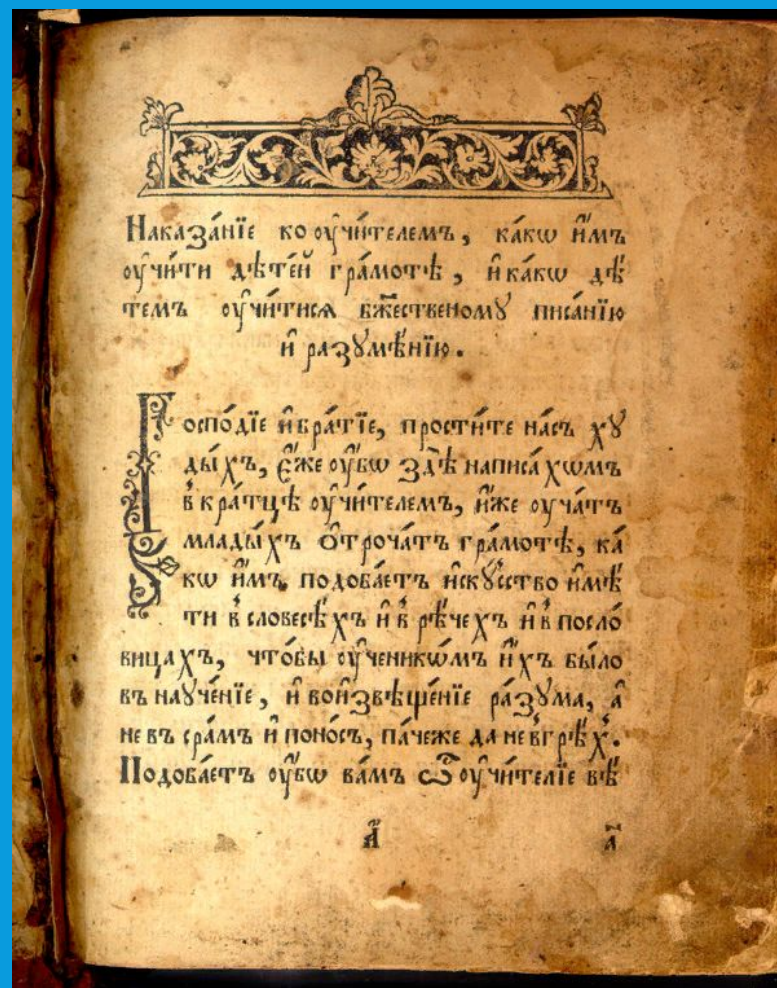 Наказа́нїе ко оу҆чи́телемъ, ка́кѡ и҆̀мъ
оу҆чи́ти дѣте́й гра́мотѣ, и҆ ка́кѡ дѣ́
темъ оу҆чи́тисѧ бж҃е́ственомꙋ писа́нїю
и҆ разꙋмѣ́нїю.
Госпо́дїе и҆ бра́тїе, прости́те на́съ хꙋ
ды́хъ, є҆́же оу҆́бѡ здѣ̀ написа́хѡмъ
в кра́тцѣ оу҆чи́телемъ, и҆́же оу҆ча́тъ
млады́хъ ѻ҆троча́тъ гра́мотѣ, ка́
кѡ и҆̀мъ подоба́етъ и҆скꙋ́сство и҆мѣ́
ти в словесѣ́хъ и҆ в рѣ́чехъ и҆ в посло́
вицахъ, что́бы оу҆ченикѡ́мъ и҆́хъ бы́ло
въ наꙋче́нїе, и҆ во и҆звѣще́нїе ра́зꙋма, а҆
не въ сра́мъ и҆ поно́съ, па́чеже да не в грѣ́х.
Подоба́етъ оу҆́бѡ ва́мъ ѽ оу҆чи́телїе вѣ́
а҃ а҃